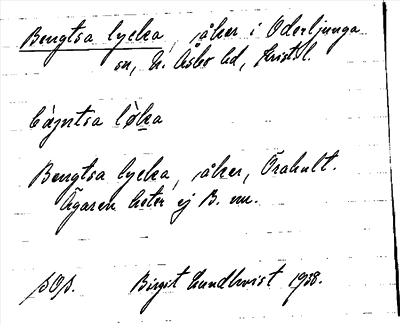 Bengtsa lycka, åker i Oderljunga
sn, N. Åsbo hd, Krist. l.
Bengtsa lycka, åker, Örahult.
Ägaren heter ej B. nu.
Birgit Lundkvist 1938.